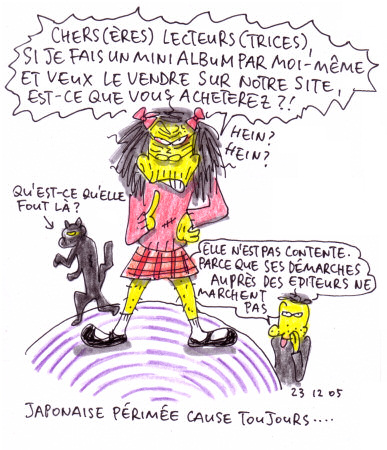 CHERS(ÈRES) LECTEURS(TRICES),
SI JE FAIS UN MINI ALBUM PAR MOI-MÊME
ET VEUX LE VENDRE SUR NOTRE SITE,
EST-CE QUE VOUS ACHETEREZ?!
HEIN?
HEIN?
QU'EST-CE QU'ELLE
FOUT LÀ?
ELLE N'EST PAS CONTENTE.
PARCE QUE SES DÉMARCHES
AUPRÈS DES EDITEURS NE
MARCHENT
PAS
23 12 05
JAPONAISE PÉRIMÉE CAUSE TOUJOURS....